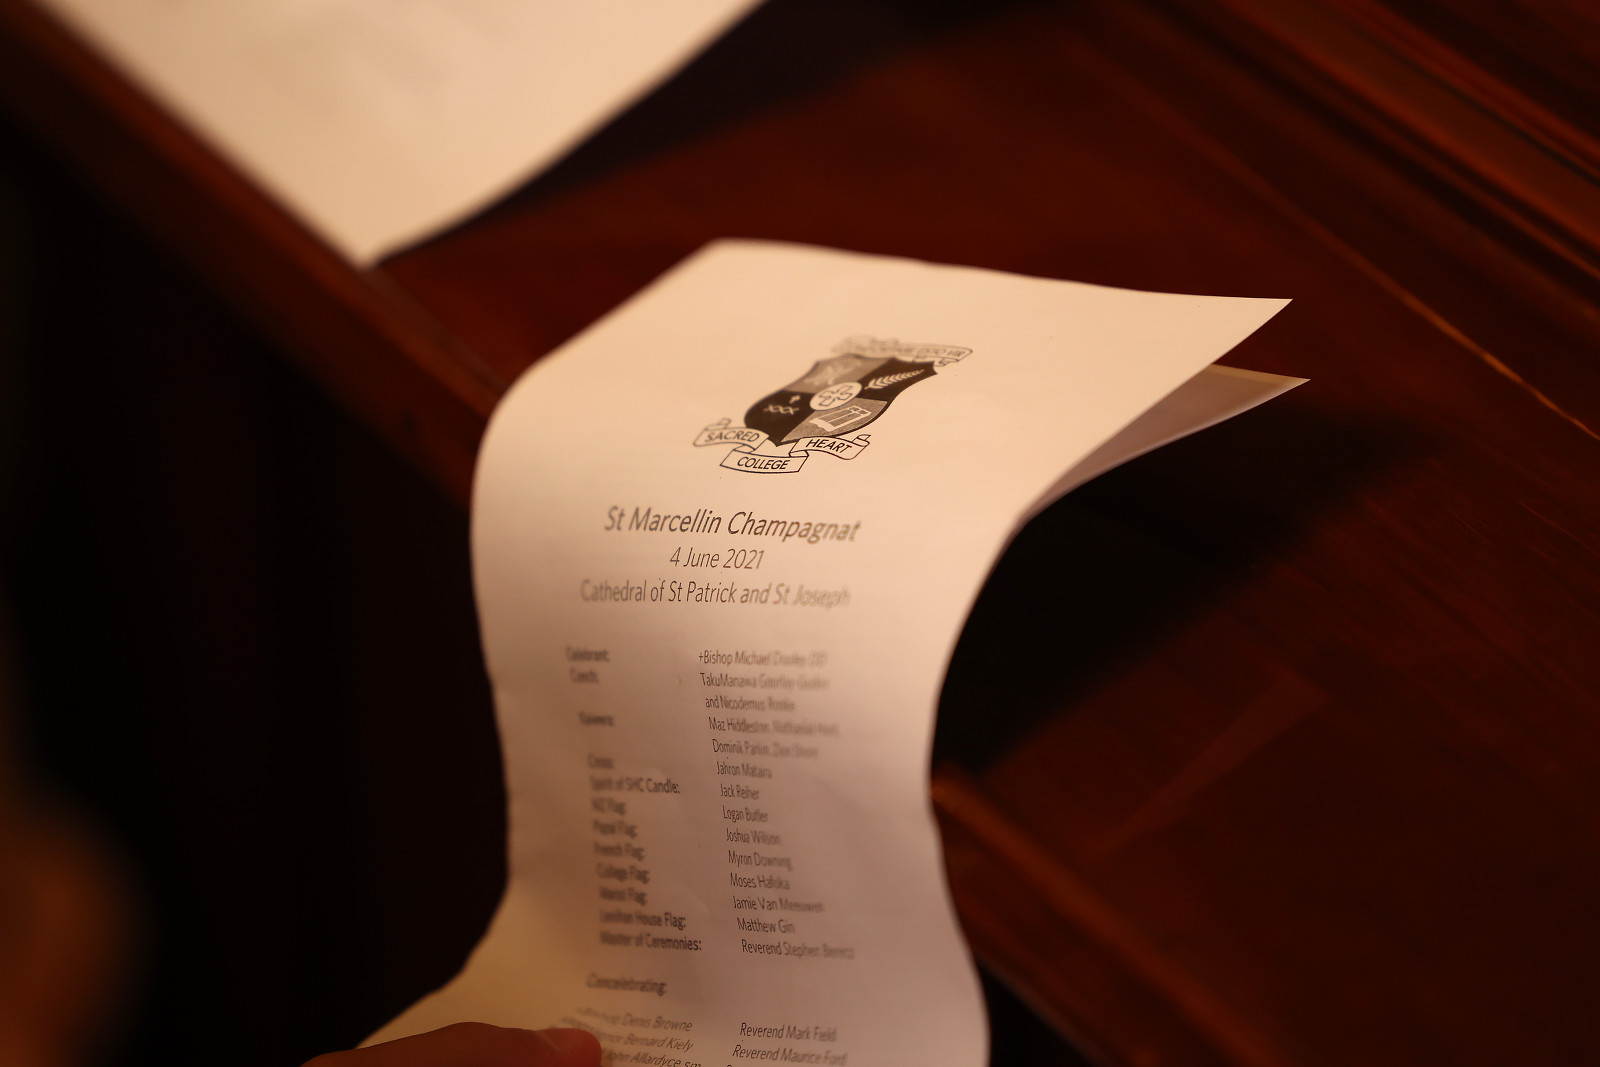 SACRED
HEART
COLLEGE
St Marcellin Champagnat
4 June 2021
Cathedral of St Patrick and St Joseph
Celebrant: +Bishop Michael
TakuManawa
and Nicodemus
Maz Hiddleston,
Dominik Parkin,
Cross: Jahron Mataira
Spirit of SHC Candle: Jack Reiher
NZ Flag: Logan Butler
Papal Flag: Joshua Wilson
French Flag: Myron Downing
College Flag: Moses Hafoka
Marist Flag: Jamie Van Meeuwen
House Flag: Matthew Gin
Master of Ceremonies: Reverend Stephen
Concelebrating:
Denis Browne Reverend Mark Field
Bernard Kiely Reverend Maurice Ford
John Allardyce sm